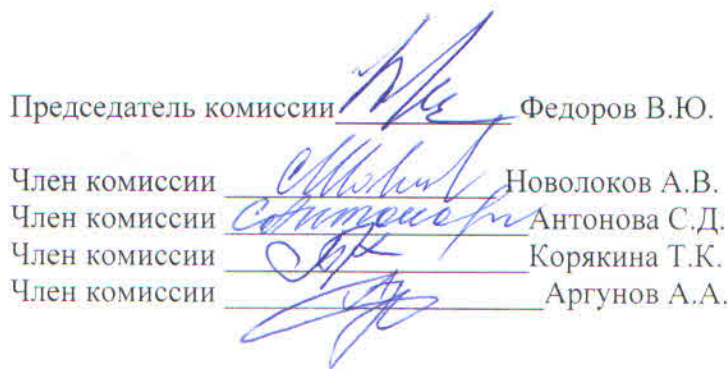 Председатель комиссии Федоров В.Ю.
Член комиссии Новолоков А.В.
Член комиссии Антонова С.Д.
Член комиссии Корякина Т.К.
Член комиссии Аргунов А.А.